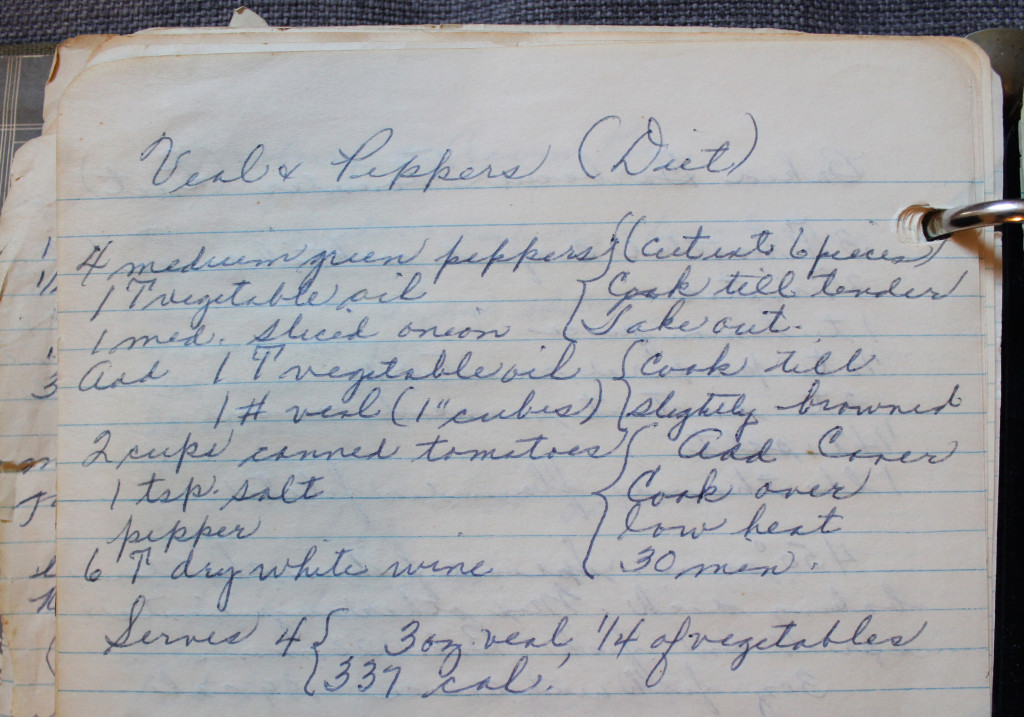 Veal & Peppers (Diet)
4 medium green peppers } (cut into 6 pieces)
1 T vegetable oil { Cook till tender
1 med. sliced onion { Take out.
Add 1 T vegetable oil { Cook till
1 # veal (1" cubes) } slightly browned
2 cups canned tomatoes { Add Cover
1 tsp. salt { Cook over
pepper { low heat
6 T dry white wine { 30 min.
Serves 4 { 3 oz. veal, 1/4 of vegetables
{ 337 cal.